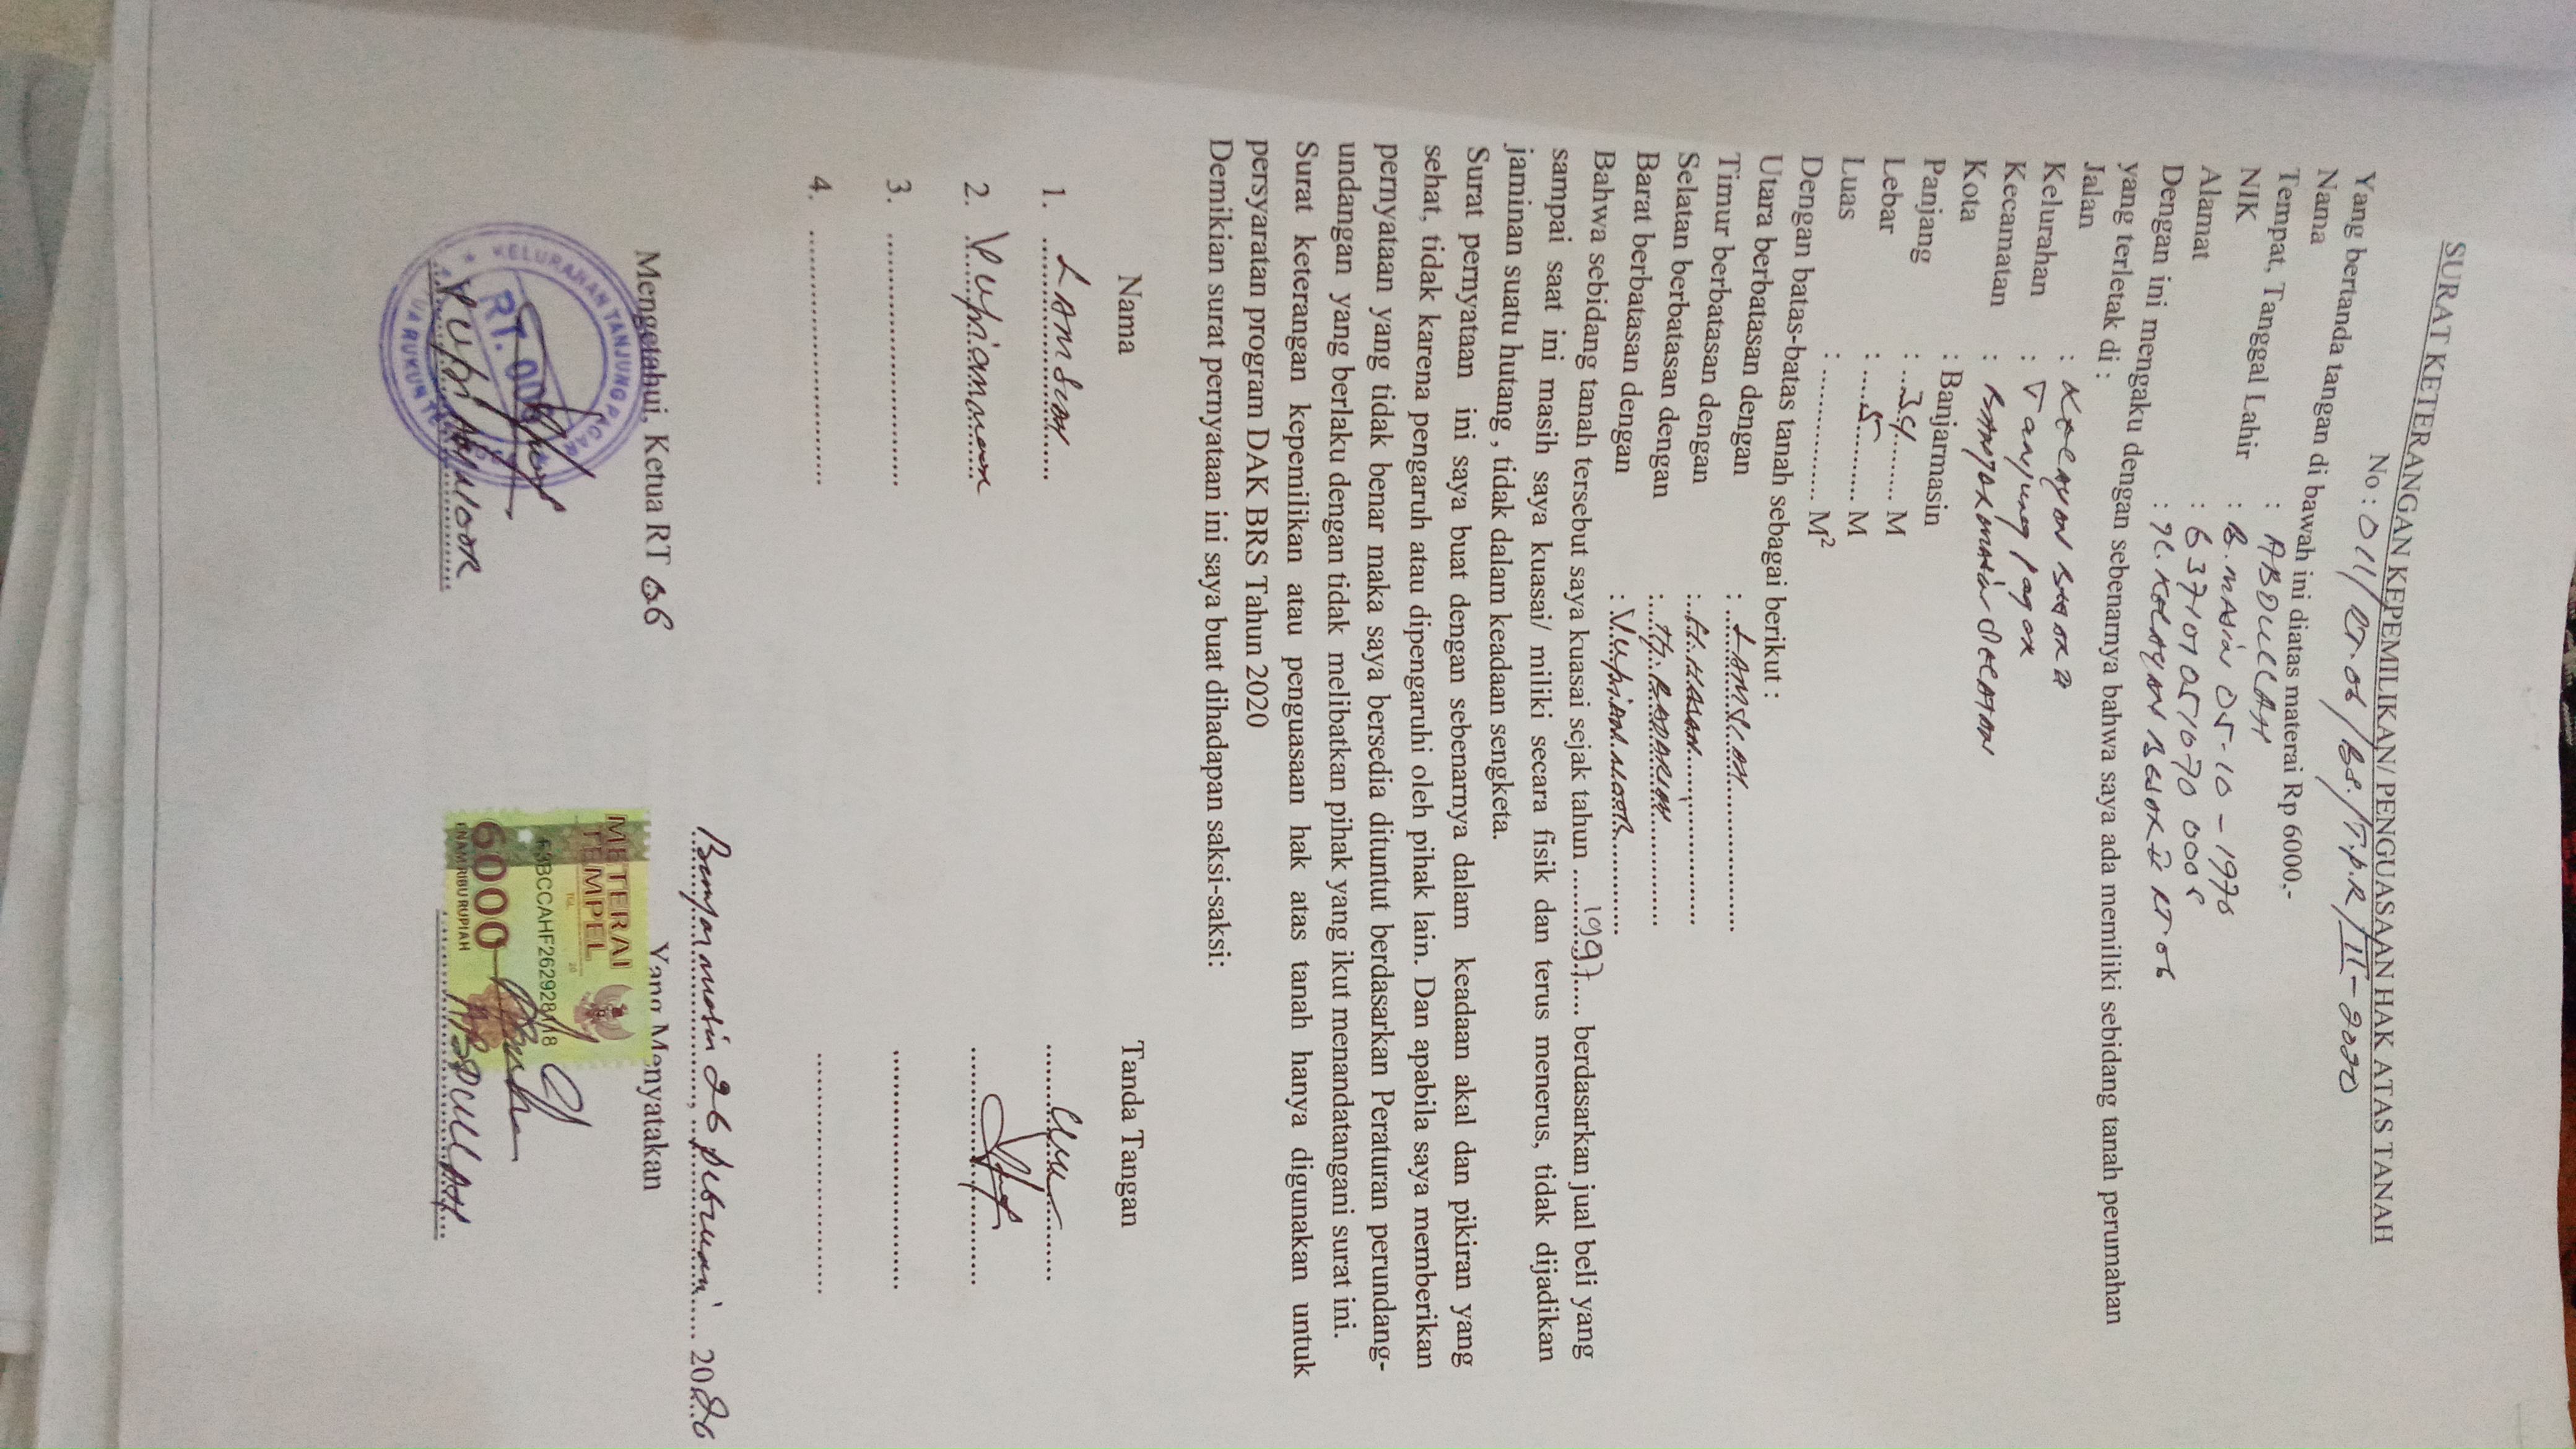 SURAT KETERANGAN KEPEMILIKAN/ PENGUASAAN HAK ATAS TANAH
No : 011/RT.06/BS./T.P.R/II-2020
Yang bertanda tangan di bawah ini diatas materai Rp 6000,-
Nama : ABDULLAH
Tempat, Tanggal Lahir : B.MAsin 05-10-1970
NIK : 637101051070 000
Alamat : RT 06
Dengan ini mengaku dengan sebenarnya bahwa saya ada memiliki sebidang tanah perumahan
yang terletak di :
Jalan
Kelurahan : Tanjung Pagar
Kecamatan : Banjarmasin Selatan
Kota : Banjarmasin
Panjang : ...34......... M
Lebar : .....5.......... M
Luas : ................ M²
Dengan batas-batas tanah sebagai berikut :
Utara berbatasan dengan
Timur berbatasan dengan : H. HASAN
Selatan berbatasan dengan
Barat berbatasan dengan
Bahwa sebidang tanah tersebut saya kuasai sejak tahun ..........1997..... berdasarkan jual beli yang
sampai saat ini masih saya kuasai/ miliki secara fisik dan terus menerus, tidak dijadikan
jaminan suatu hutang , tidak dalam keadaan sengketa.
Surat pernyataan ini saya buat dengan sebenarnya dalam keadaan akal dan pikiran yang
sehat, tidak karena pengaruh atau dipengaruhi oleh pihak lain. Dan apabila saya memberikan
pernyataan yang tidak benar maka saya bersedia dituntut berdasarkan Peraturan perundang-
undangan yang berlaku dengan tidak melibatkan pihak yang ikut menandatangani surat ini.
Surat keterangan kepemilikan atau penguasaan hak atas tanah hanya digunakan untuk
persyaratan program DAK BRS Tahun 2020
Demikian surat pernyataan ini saya buat dihadapan saksi-saksi:
Nama Tanda Tangan
1.
2.
3. ................................
4. ................................
Banjarmasin, 26 Februari 2020
Mengetahui, Ketua RT 06 Yang Menyatakan
KELURAHAN TANJUNG PAGAR
METERAI
TEMPEL
TGL. 20
6000
ENAM RIBU RUPIAH
ABDULLAH